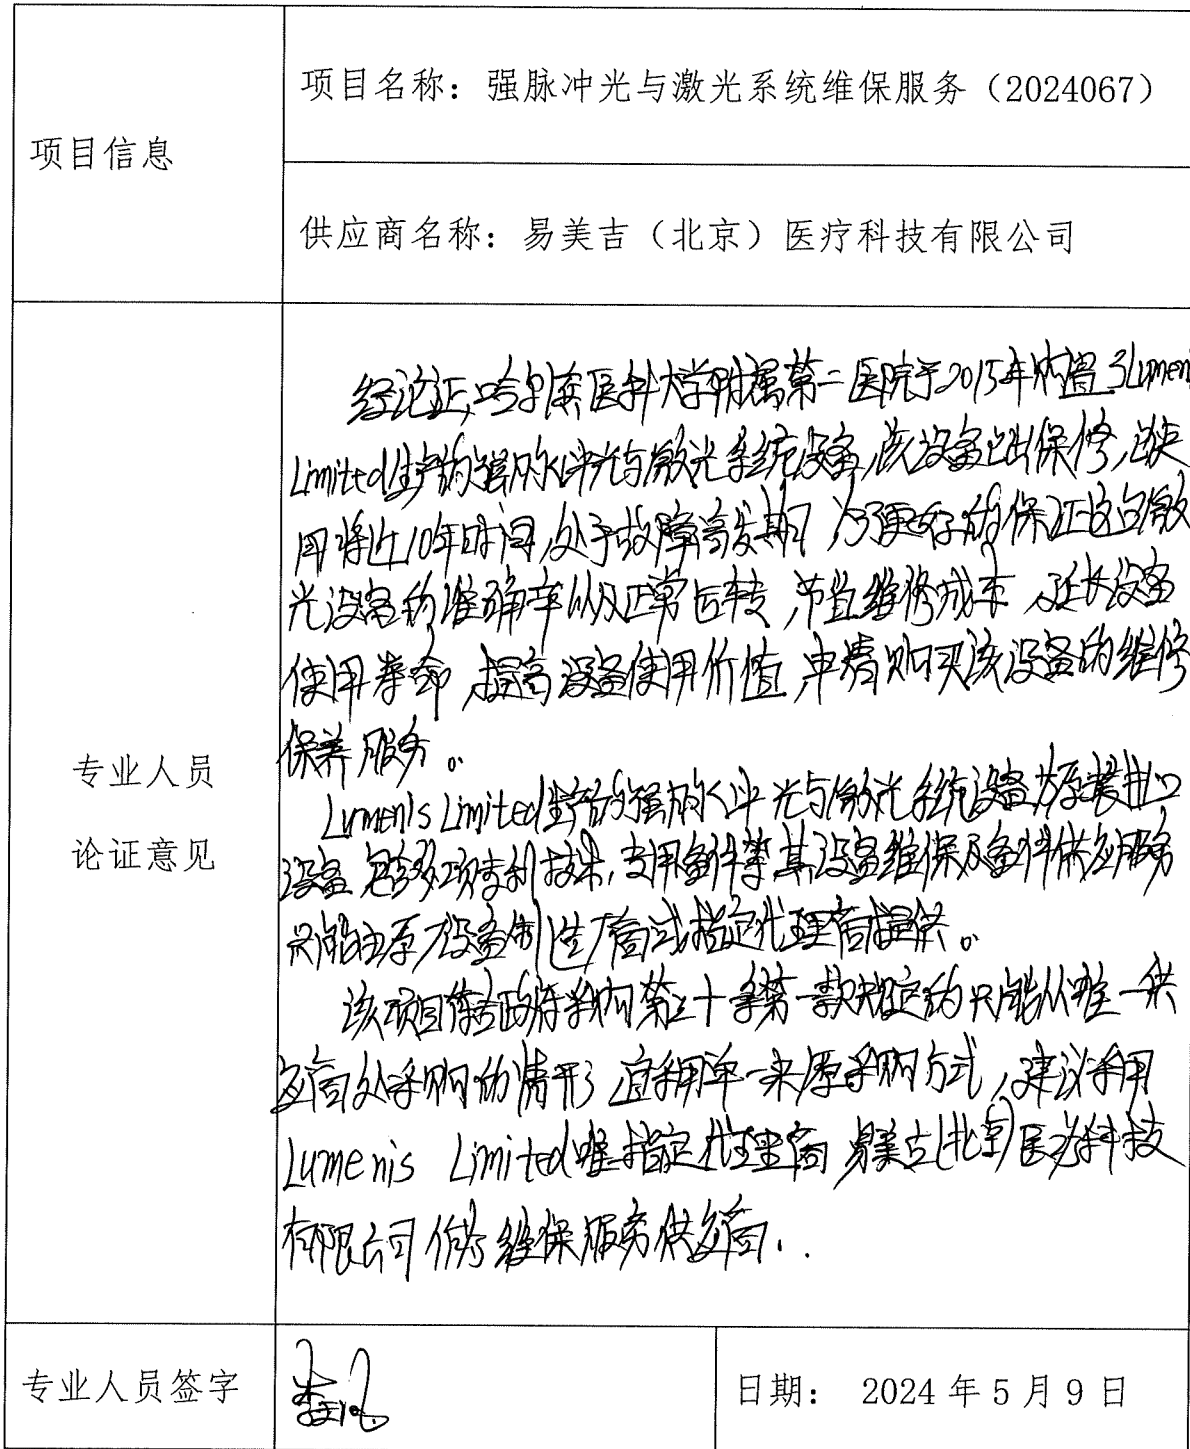 项目信息
项目名称：强脉冲光与激光系统维保服务（2024067）
供应商名称：易美吉（北京）医疗科技有限公司
专业人员
论证意见
经论证，哈尔滨医科大学附属第二医院于2015年购置了Lumeni
Limited生产的强脉冲光与激光系统设备，该设备已出保修，已使
用将近10年时间，处于故障高发期，为了更好的保证这台激
光设备的准确率以及正常运转，节省维修成本，延长设备
使用寿命，提高设备使用价值，申请购买该设备的维修
保养服务。
Lumenis Limited生产的强脉冲光与激光系统设备为原装进口
设备，包含多项专利技术，专用备件等，其设备维保及备件供应服务
只能由原设备制造厂商或指定代理商提供。
该项目符合政府采购第三十一条第一款规定的只能从唯一供
应商处采购的情形，宜采用单一来源采购方式，建议采用
Lumenis Limited唯一指定代理商易美吉(北京)医疗科技
有限公司作为维保服务供应商.
专业人员签字
日期： 2024 年 5 月 9 日